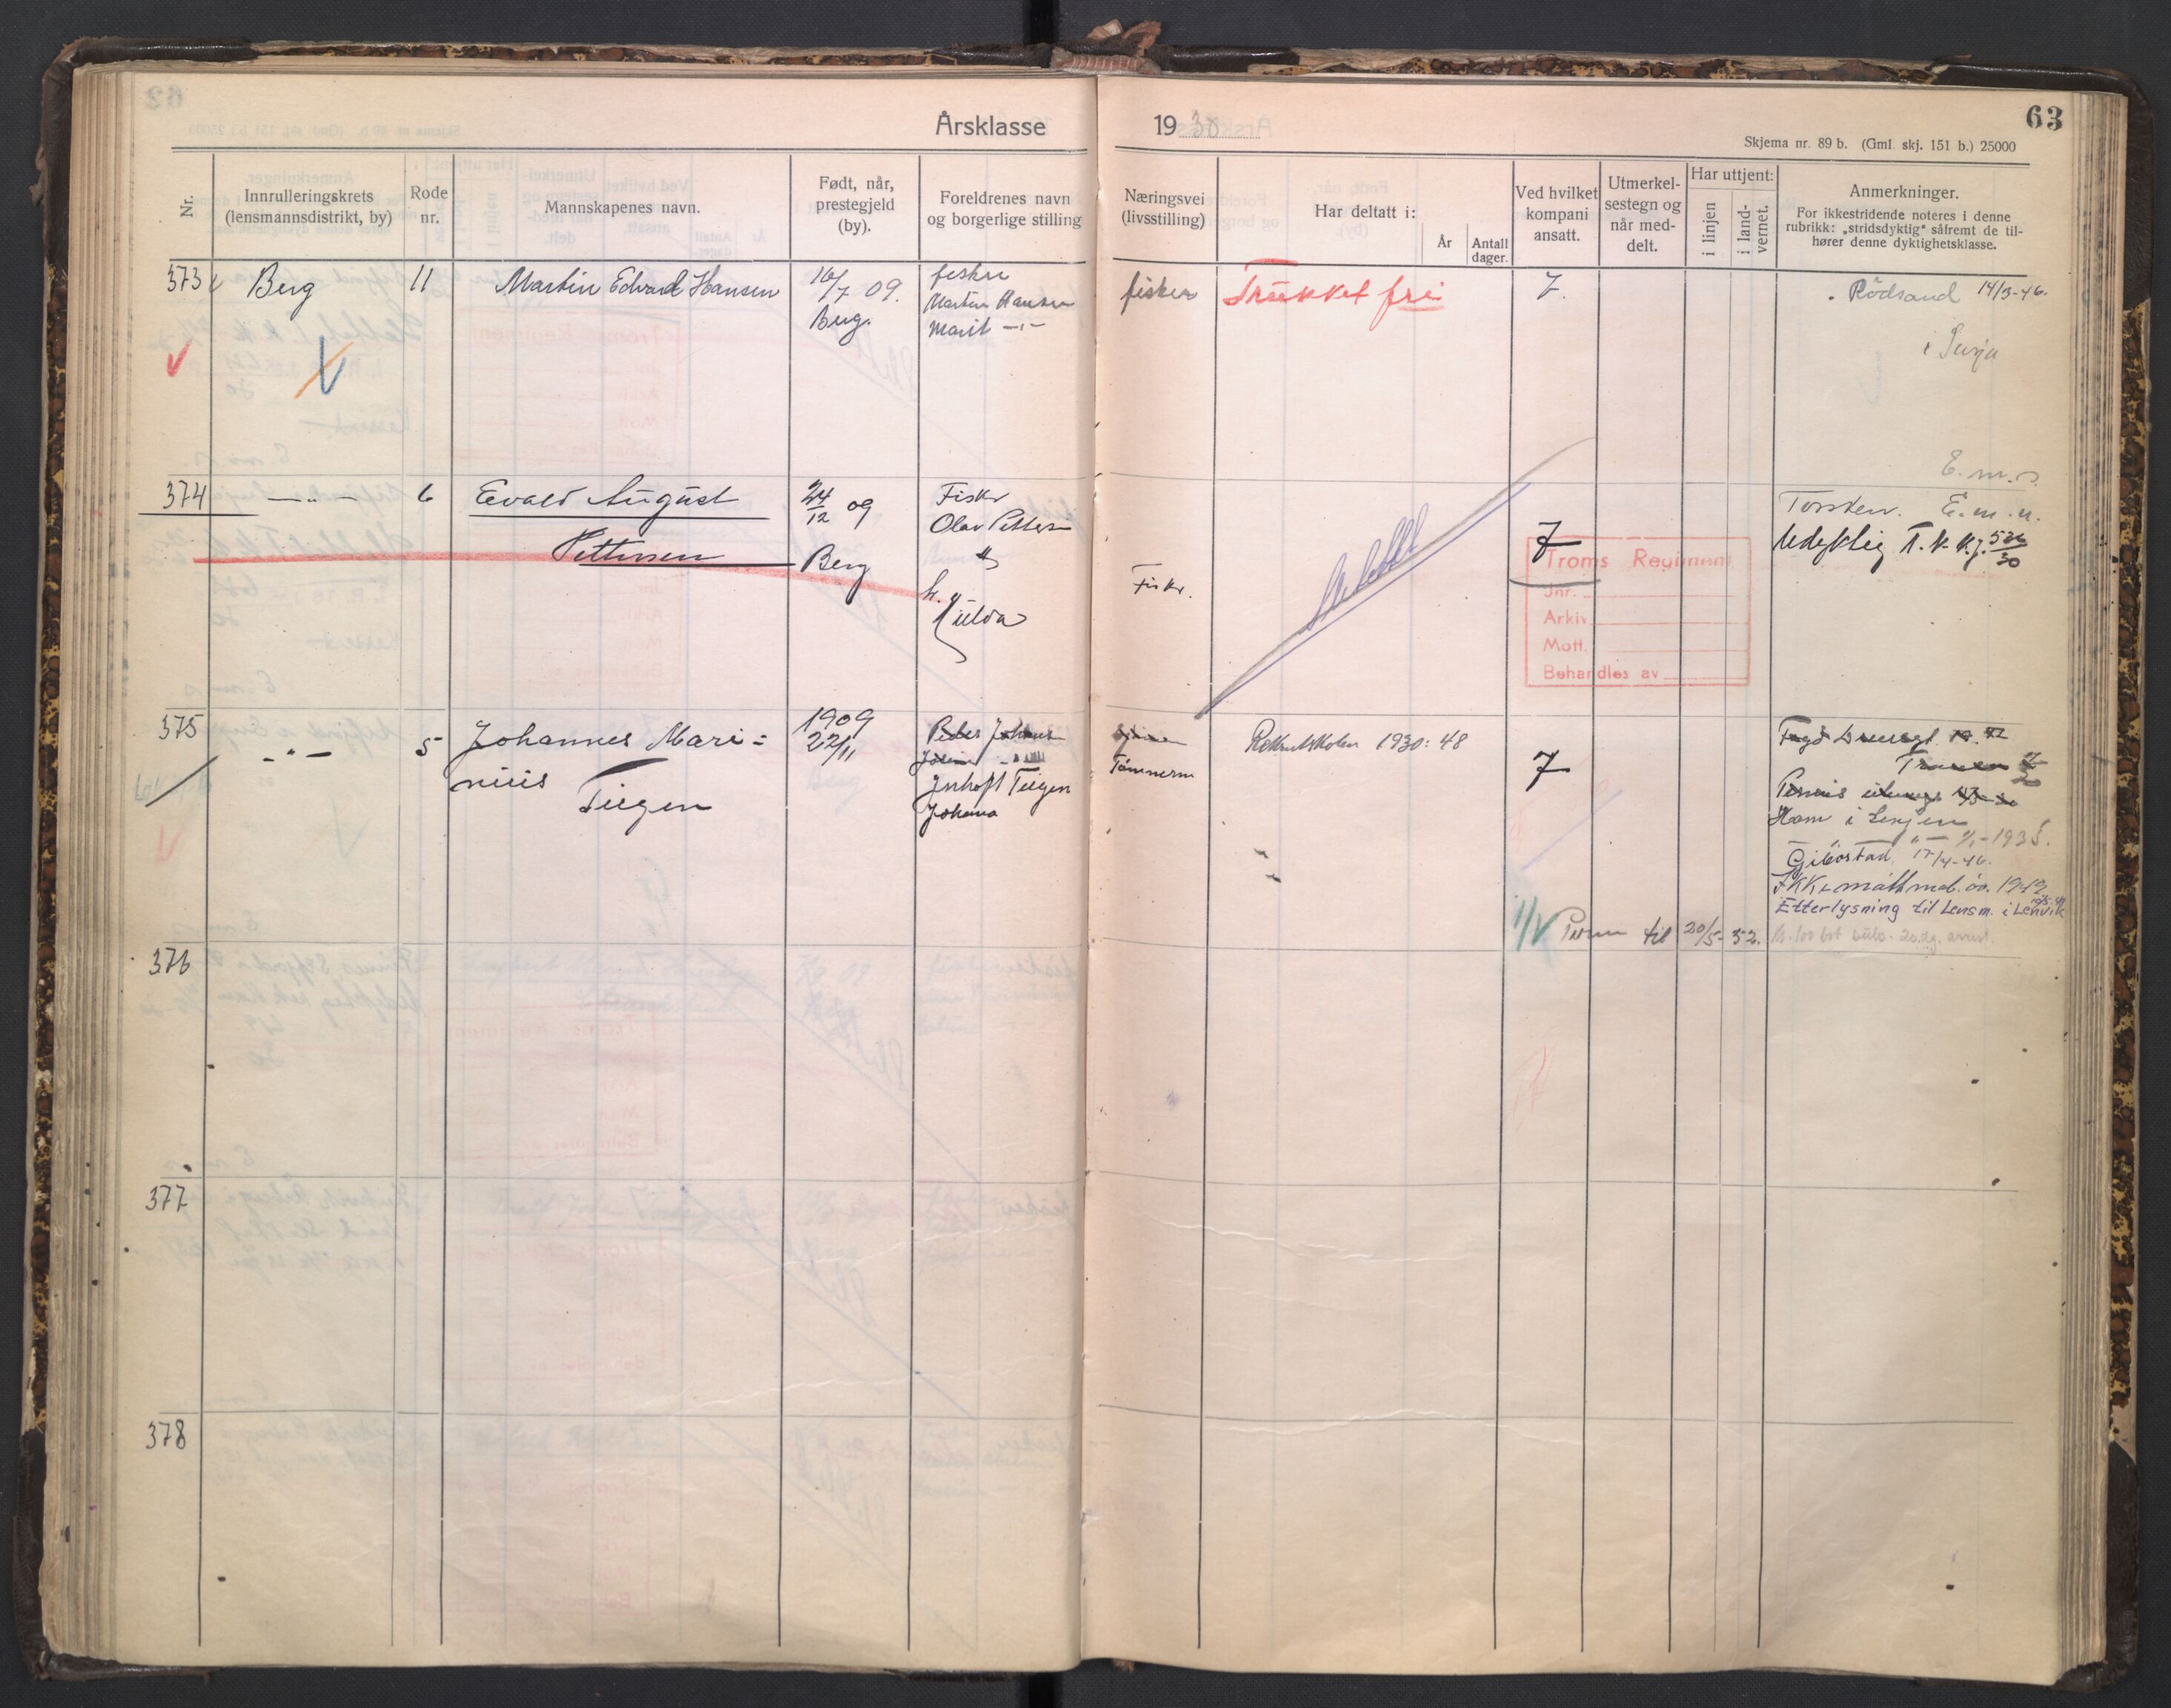 63
Årsklasse 1930
Skjema nr. 89 b. (Gml. skj. 151 b.) 25000
Nr.
Innrulleringskrets
(lensmannsdistrikt, by)
Rode
nr.
Mannskapenes navn.
Født, når,
prestegjeld
(by).
Foreldrenes navn
og borgerlige stilling
Næringsvei
(livsstilling)
Har deltatt i:
År
Antall
dager.
Ved hvilket
kompani
ansatt.
Utmerkel-
sestegn og
når med-
delt.
Har uttjent:
i linjen
i land-
vernet.
Anmerkninger.
For ikkestridende noteres i denne
rubrikk: „stridsdyktig“ såfremt de til-
hører denne dyktighetsklasse.
373
Berg
11
Martin Edvard Hansen
16/7 09.
Berg.
fisker
Martin Hansen
Marit -"-
fisker
Trukket fri
7.
Rödsand 14/3-46.
i Senja
E. m. s.
374
-"-
6
Evald August
Pettersen
24/12 09
Berg
Fisker
Olav Petters
h.
Hulda
Fisker.
7
Troms Regiment
Jnr.
Arkiv
Mott.
Behandles av
Torsken. E. m. u.
Udyktig T.k.k.j. 536/30
375
-"-
5
Johannes Mari=
nius
Tiegen
1909
22/11
Peder Johans
Jenhoft Teigen
Johana
Tömmerm
Rekrutskolen 1930: 48
7
Ham i Senjen
-"- 1/1-1935.
Gibostad 17/4-46.
Etterlysning til Lensm. i Lenvik
Perm til 20/5-52.
376
377
378